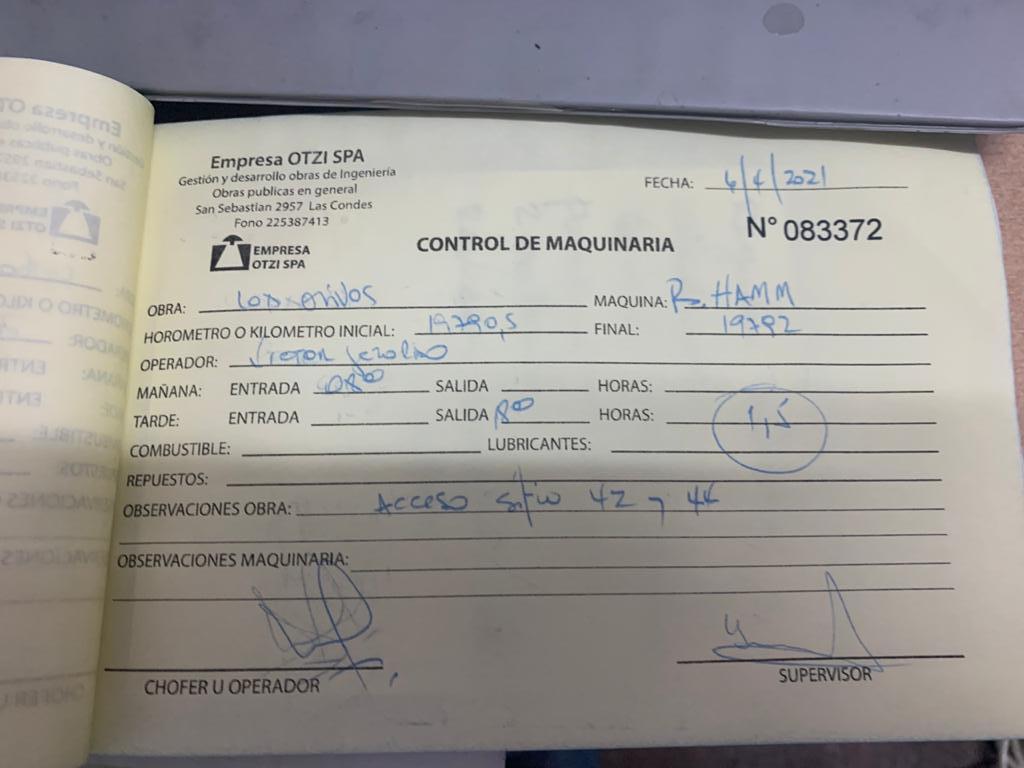 Empresa OTZI SPA
Gestión y desarrollo obras de Ingeniería
Obras publicas en general
San Sebastian 2957 Las Condes
Fono 225387413
EMPRESA
OTZI SPA
FECHA: 6/4/2021
N° 083372
CONTROL DE MAQUINARIA
OBRA: MAQUINA: R. HAMM
HOROMETRO O KILOMETRO INICIAL: 19790,5 FINAL: 19792
OPERADOR: Victor
MAÑANA: ENTRADA 08:00 SALIDA HORAS:
TARDE: ENTRADA SALIDA 18:00 HORAS: 1,5
COMBUSTIBLE: LUBRICANTES:
REPUESTOS:
OBSERVACIONES OBRA: Acceso sitio 42 y 44
OBSERVACIONES MAQUINARIA:
CHOFER U OPERADOR SUPERVISOR